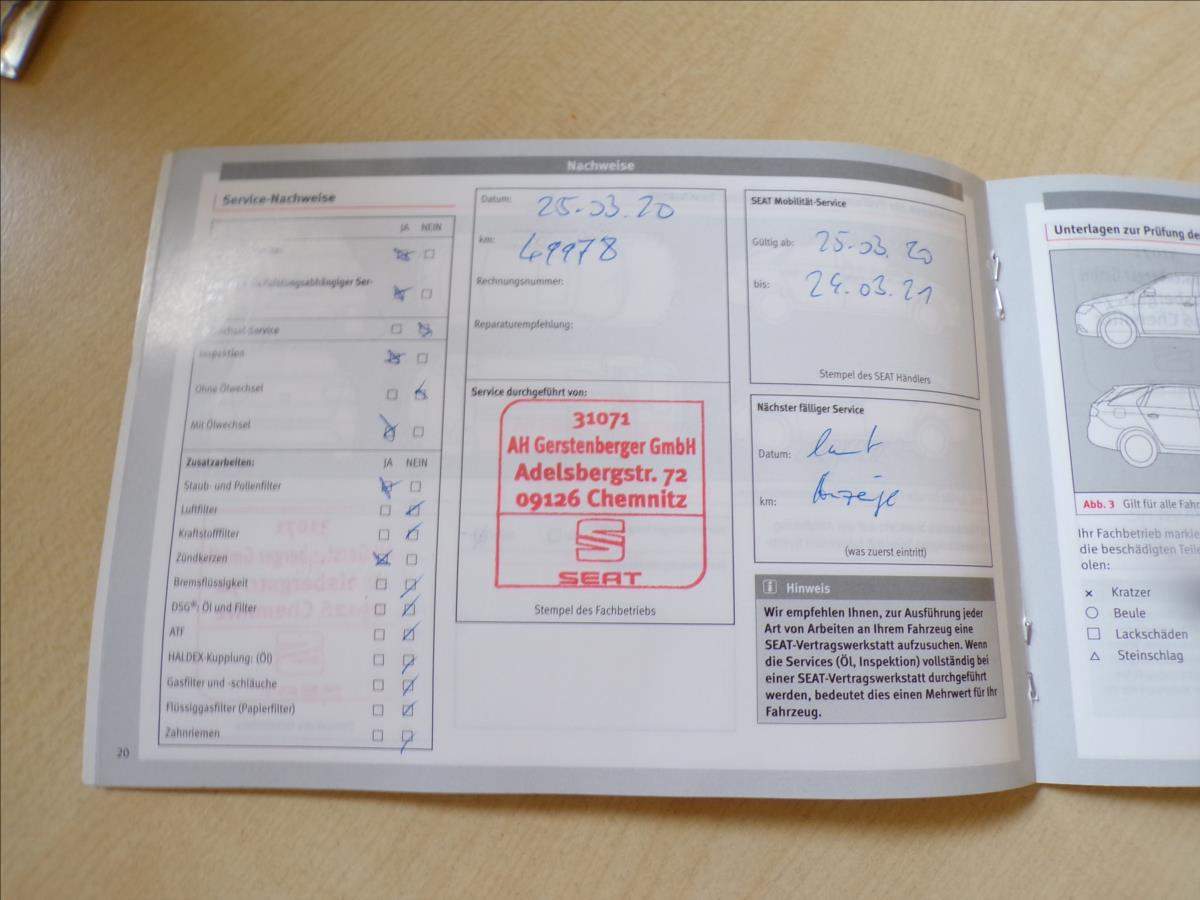 Nachweise
Service-Nachweise
JA NEIN
Ser-
Service
Inspektion
Ohne Ölwechsel
Mit Ölwechsel
Zusatzarbeiten: JA NEIN
Staub- und Pollenfilter
Luftfilter
Kraftstofffilter
Zündkerzen
Bremsflüssigkeit
DSG®: Öl und Filter
ATF
HALDEX-Kupplung: (Öl)
Gasfilter und -schläuche
Flüssiggasfilter (Papierfilter)
Zahnriemen
20
Datum: 25.03.20
km: 49978
Rechnungsnummer:
Reparaturempfehlung:
Service durchgeführt von:
31071
AH Gerstenberger GmbH
Adelsbergstr. 72
09126 Chemnitz
SEAT
Stempel des Fachbetriebs
SEAT Mobilität-Service
Gültig ab: 25.03.20
bis: 24.03.21
Stempel des SEAT Händlers
Nächster fälliger Service
Datum: laut
km: Anzeige
(was zuerst eintritt)
Hinweis
Wir empfehlen Ihnen, zur Ausführung jeder
Art von Arbeiten an Ihrem Fahrzeug eine
SEAT-Vertragswerkstatt aufzusuchen. Wenn
die Services (Öl, Inspektion) vollständig bei
einer SEAT-Vertragswerkstatt durchgeführt
werden, bedeutet dies einen Mehrwert für Ihr
Fahrzeug.
Unterlagen zur Prüfung de
Abb. 3 Gilt für alle Fahr
Ihr Fachbetrieb markie
die beschädigten Teile
olen:
× Kratzer
○ Beule
□ Lackschäden
△ Steinschlag